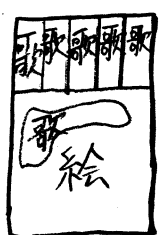 歌 歌 歌 歌 歌
歌
絵